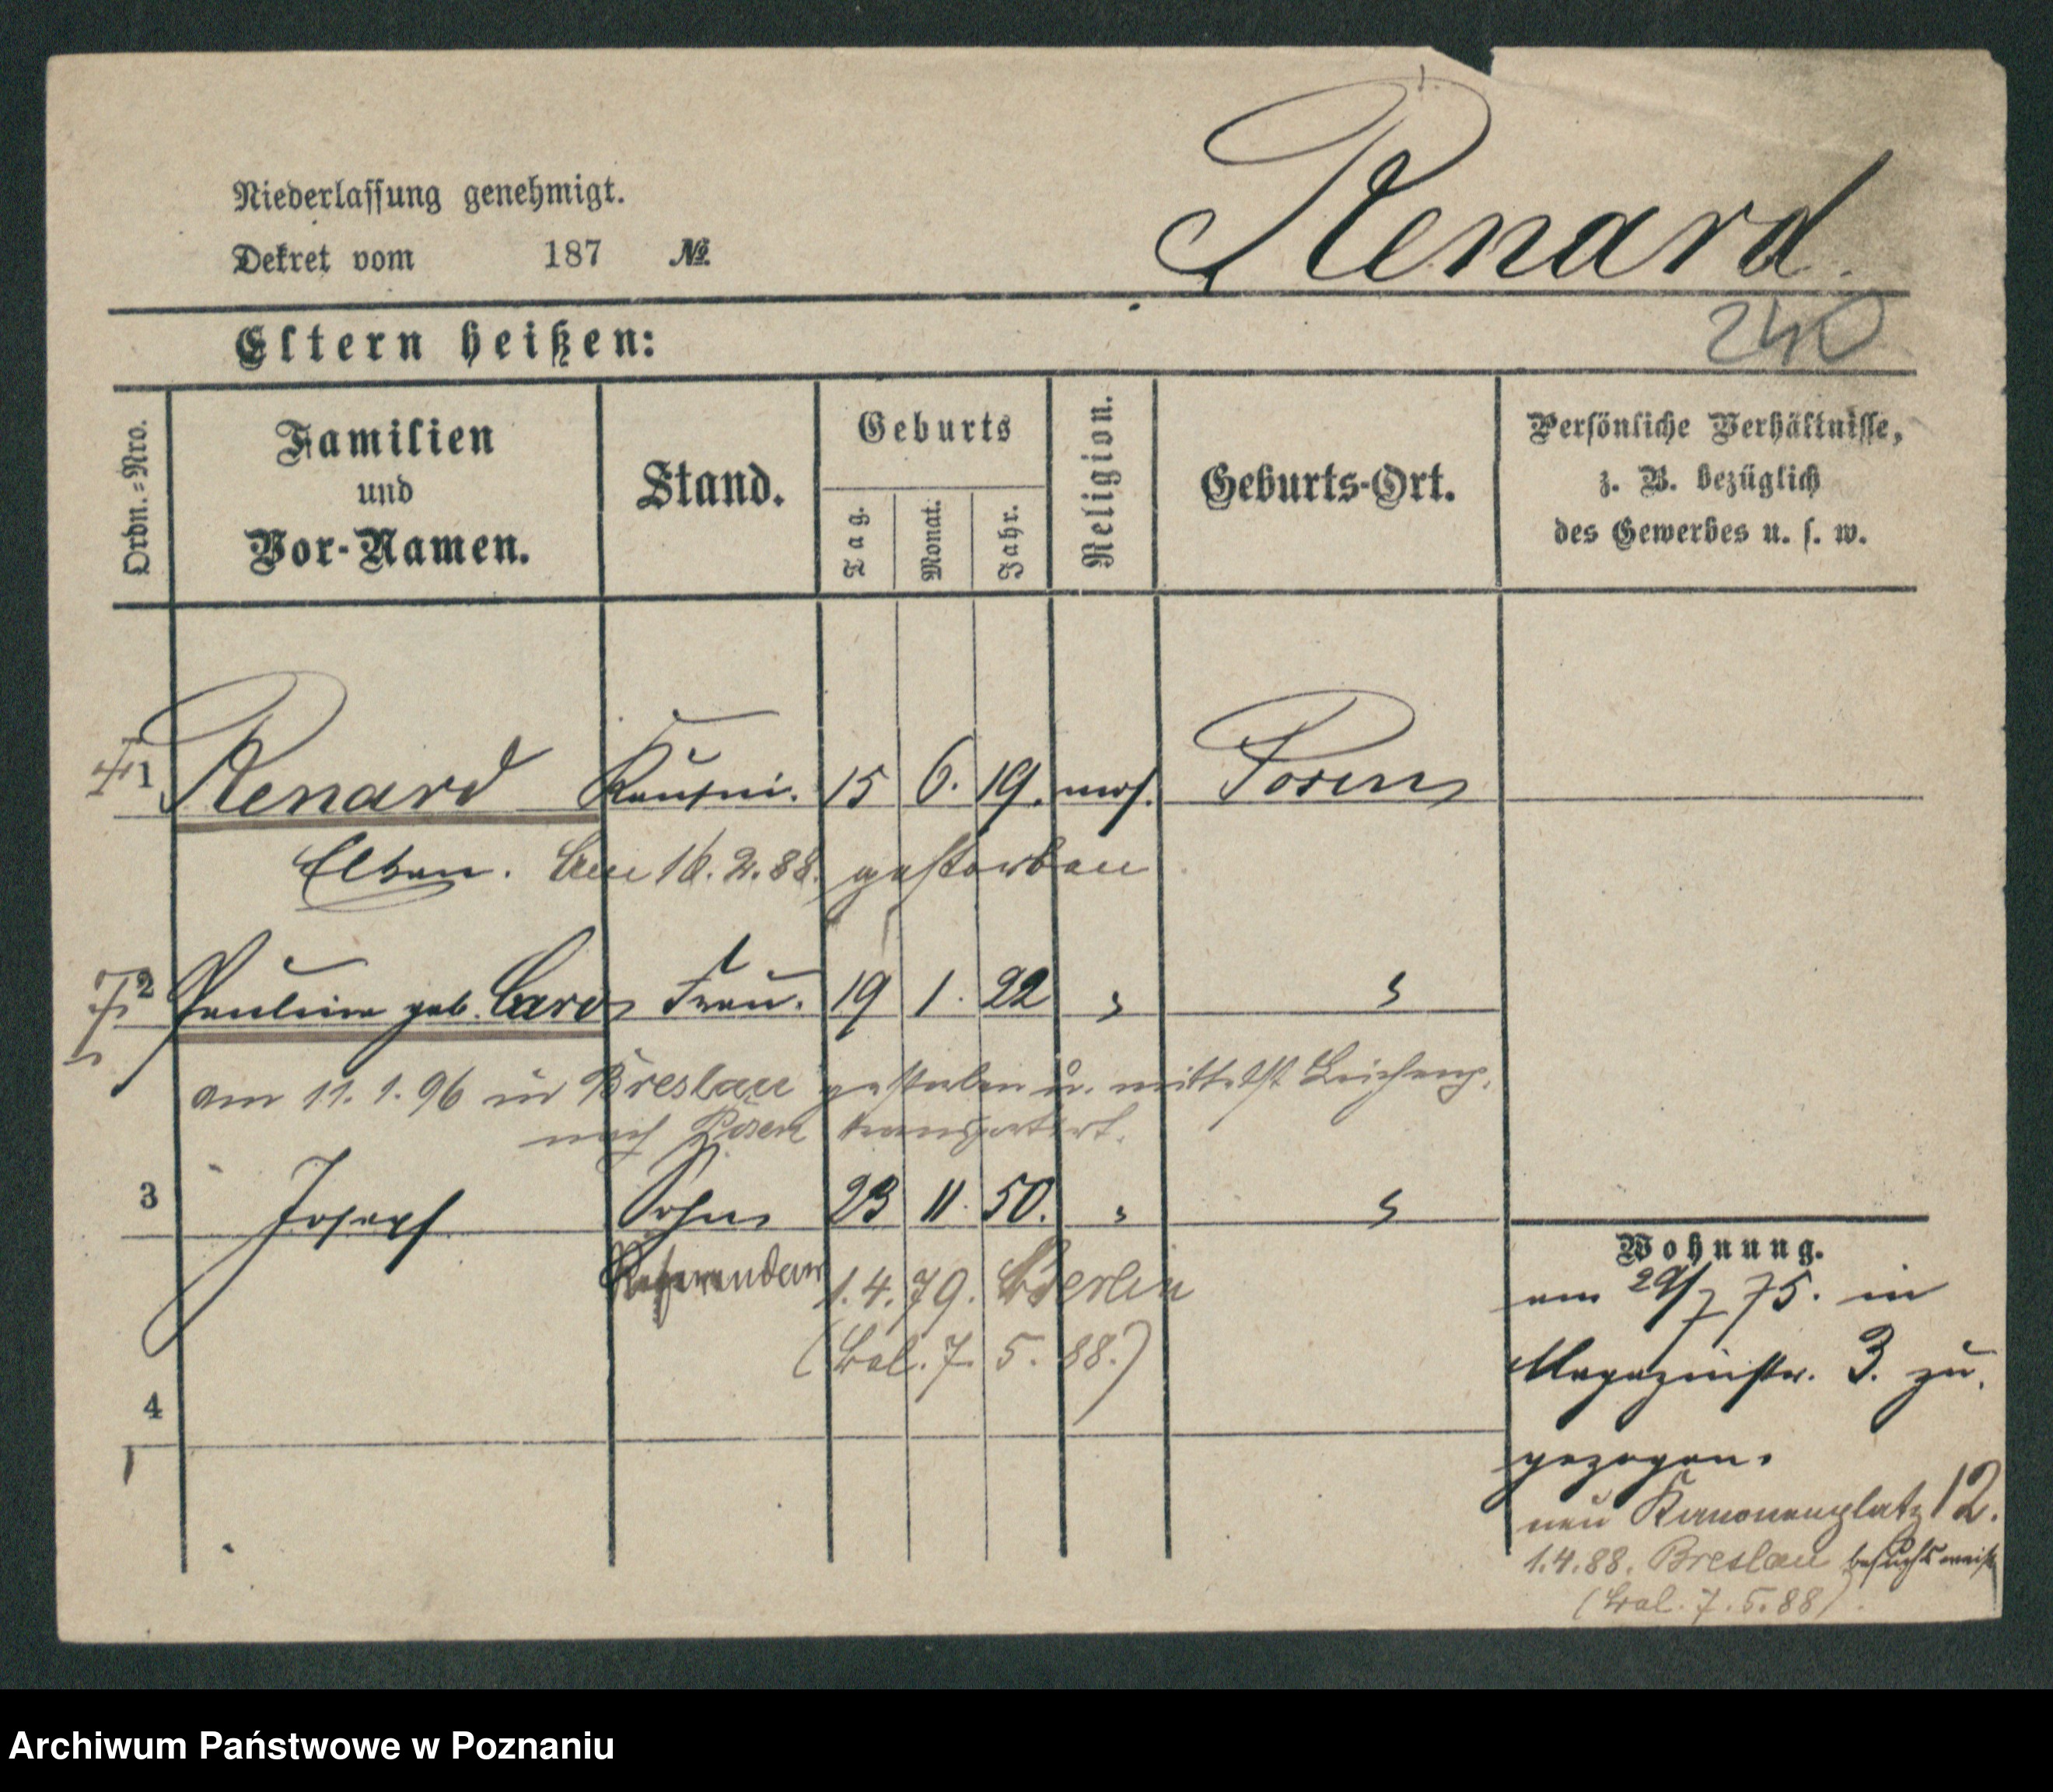 Renard.
Niederlassung genehmigt.
Dekret vom 187 №
240
Eltern heißen:
Ordn.-Nro.
Familien und Vor-Namen.
Stand.
Geburts
Tag.
Monat.
Jahr.
Religion.
Geburts-Ort.
Persönliche Verhältnisse,
z. B. bezüglich
des Gewerbes u. s. w.
1 Renard Kaufm. 15 6. 19. mos. Posen
am 16. 2. 88. gestorben
2 Pauline geb. Caro Frau. 19 1. 22 " "
am 11. 1. 96 in Breslau gestorben u. mittelst Leichenp.
nach Posen transportirt.
3 Joseph Sohn 23 11. 50. " "
Referendar 1. 4. 79. Berlin
(Bal. 7. 5. 88.)
4
Wohnung.
am 29/7 75. in
Magazinstr. 3. zu.
gezogen.
neu Kanonenplatz 12.
1.4.88. Breslau besuchsweise
(Bal. 7. 5. 88)
Archiwum Państwowe w Poznaniu